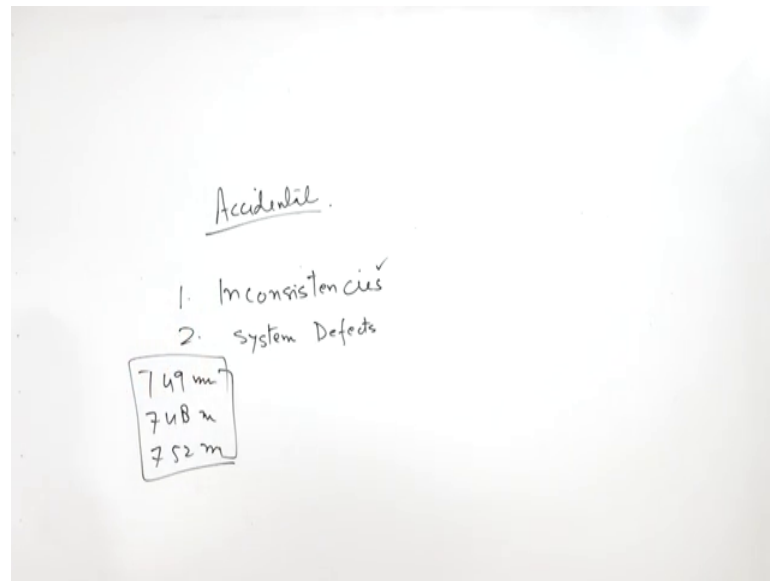 Accidental.
1. Inconsistencies ✓
2. System Defects
749 m
748 m
752 m